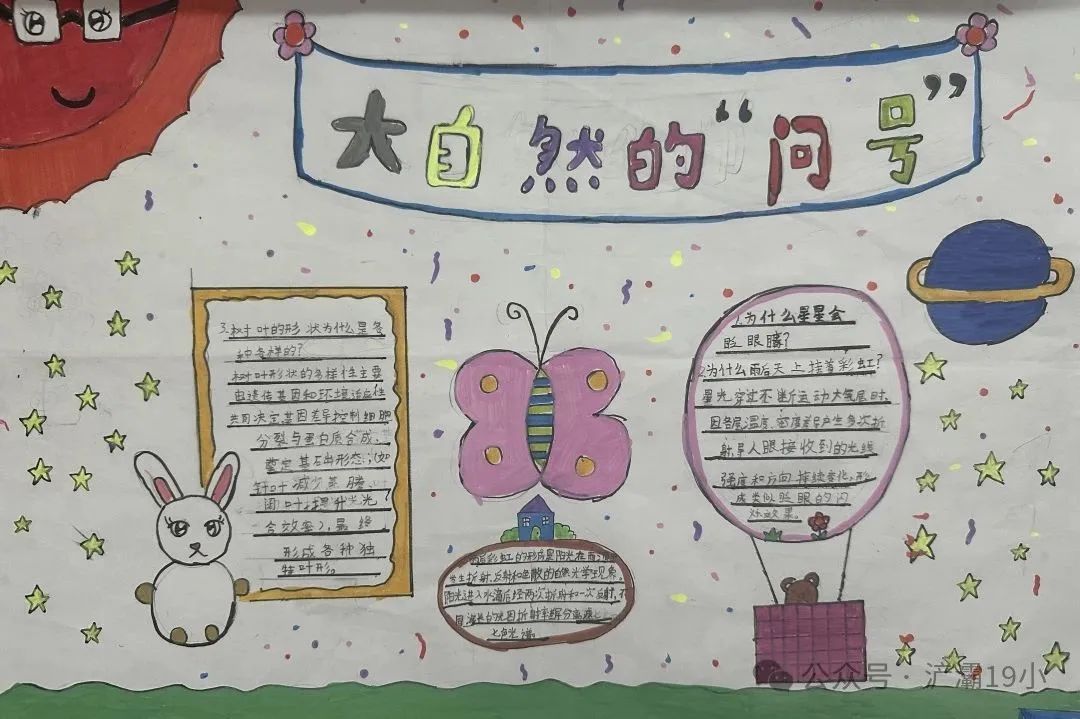 大自然的“问号”
3.树叶的形状为什么是各
种各样的？
树叶形状的多样性主要
由遗传基因和环境适应性
共同决定基因差异控制细胞
分裂与蛋白质合成，
奠定基础出形态；（如
针叶减少蒸腾，
阔叶提升光
合效率），最终
形成各种独
特叶形。
1.为什么星星会
眨眼睛？
2.为什么雨后天上挂着彩虹？
星光穿过不断运动大气层时，
因各层温度、密度差产生多次折
射，导人眼接收到的光线
强度和方向持续变化，形
成类似眨眼的闪
烁效果。
雨后彩虹的形成是阳光在雨
发生折射、反射和色散的自然光学现象。
阳光进入水滴后经两次折射和一次反射，不
同波长的光因折射率
七色光谱。
公众号·浐灞19小